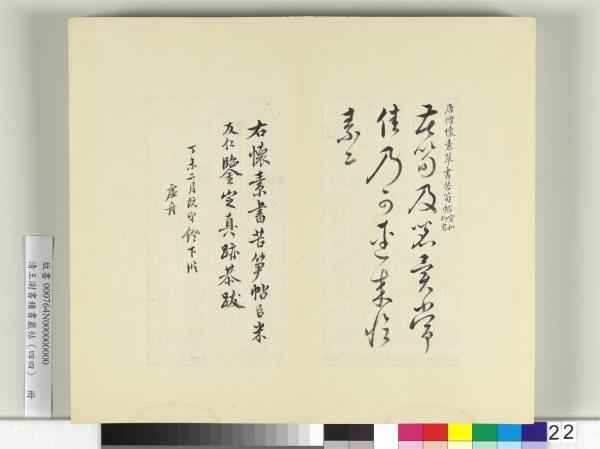 唐僧懷素草書苦筍帖宣和御書
苦筍及茗異常
佳乃可逕來懷
素上
右懷素書苦筍帖臣米
友仁鑒定真跡恭跋
丁未二月既望燈下臨
虛舟
故書 000764N000000000
清王澍書積書巖帖(四四) 冊
22